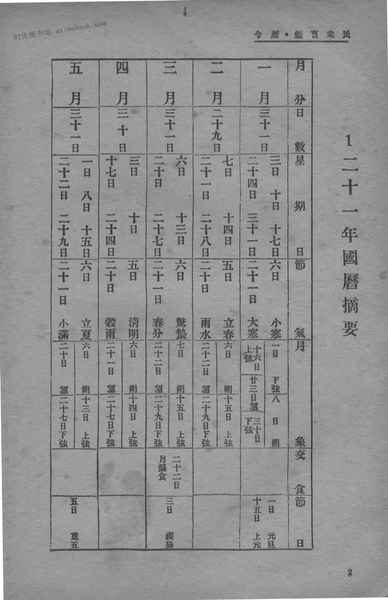 1 二十一年國曆摘要
月分 日數 星期日 節氣 月象 交食 節日
一月 三十一日 三日 十日 十七日 六日 小寒 一日 下弦 八日 朔 一日 元旦
二十四日 三十一日 二十一日 大寒 十六日上弦 廿三日望 三十日下弦 十五日 上元
二月 二十九日 七日 十四日 五日 立春 六日 朔 十五日 上弦
二十一日 二十八日 二十日 雨水 二十二日 望 二十九日下弦
三月 三十一日 六日 十三日 六日 驚蟄 七日 朔 十五日 上弦 二十二日 三日
二十日 二十七日 二十一日 春分 二十二日 望 二十九日下弦 月偏食
四月 三十日 三日 十日 五日 清明 六日 朔 十四日 上弦
十七日 二十四日 二十日 穀雨 二十日 望 二十七日下弦
五月 三十一日 一日 八日 十五日 六日 立夏 六日 朔 十三日 上弦 五日 重五
二十二日 二十九日 二十一日 小滿 二十日 望 二十七日下弦
2